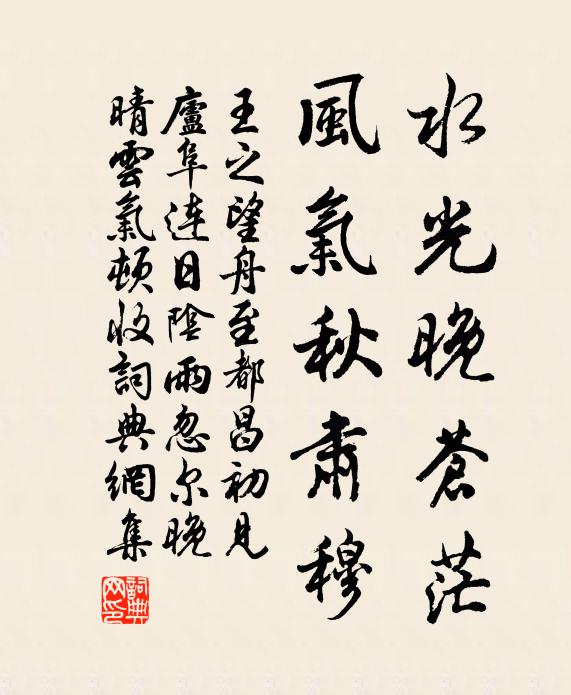 水光晚蒼茫
風氣秋肅穆
王之望舟至都昌初見
廬阜連日陰雨忽尔晚
晴雲氣頓收詞典網集
詞典網印